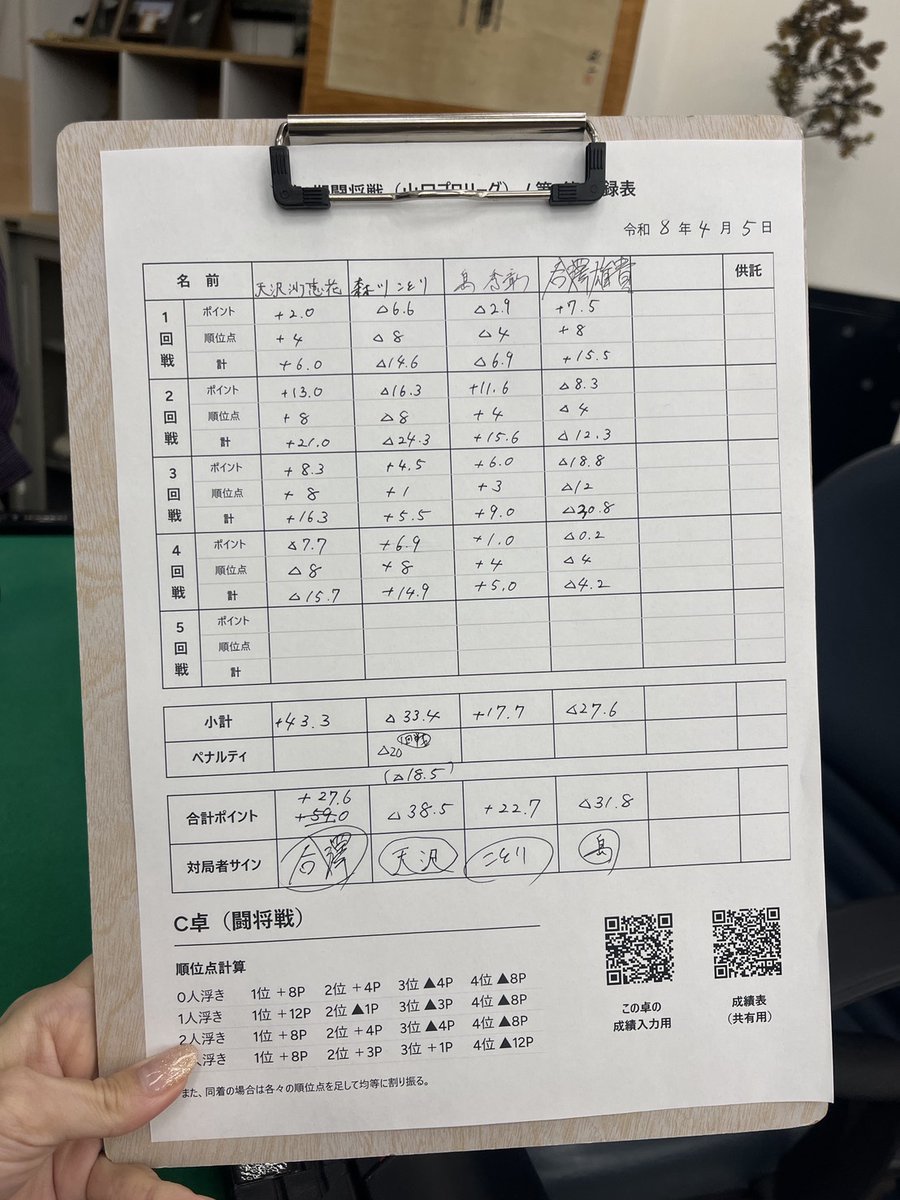 闘将戦（山口プロリーグ）/ 第 録表
令和 8 年 4 月 5 日
名 前 天沢沙恵花 森川ことり 島 合澤雄貴 供託
1回戦 ポイント +2.0 △6.6 △2.9 +7.5
順位点 +4 △8 △4 +8
計 +6.0 △14.6 △6.9 +15.5
2回戦 ポイント +13.0 △16.3 +11.6 △8.3
順位点 +8 △8 +4 △4
計 +21.0 △24.3 +15.6 △12.3
3回戦 ポイント +8.3 +4.5 +6.0 △18.8
順位点 +8 +1 +3 △12
計 +16.3 +5.5 +9.0 △30.8
4回戦 ポイント △7.7 +6.9 +1.0 △0.2
順位点 △8 +8 +4 △4
計 △15.7 +14.9 +5.0 △4.2
5回戦 ポイント
順位点
計
小計 +43.3 △33.4 +17.7 △27.6
ペナルティ △20 回戦
(△18.5)
合計ポイント +27.6 +59.0 △38.5 +22.7 △31.8
対局者サイン 合澤 天沢 ことり 島
C卓（闘将戦）
順位点計算
0人浮き 1位 +8P 2位 +4P 3位 ▲4P 4位 ▲8P
1人浮き 1位 +12P 2位 ▲1P 3位 ▲3P 4位 ▲8P
2人浮き 1位 +8P 2位 +4P 3位 ▲4P 4位 ▲8P
人浮き 1位 +8P 2位 +3P 3位 +1P 4位 ▲12P
また、同着の場合は各々の順位点を足して均等に割り振る。
この卓の
成績入力用
成績表
（共有用）